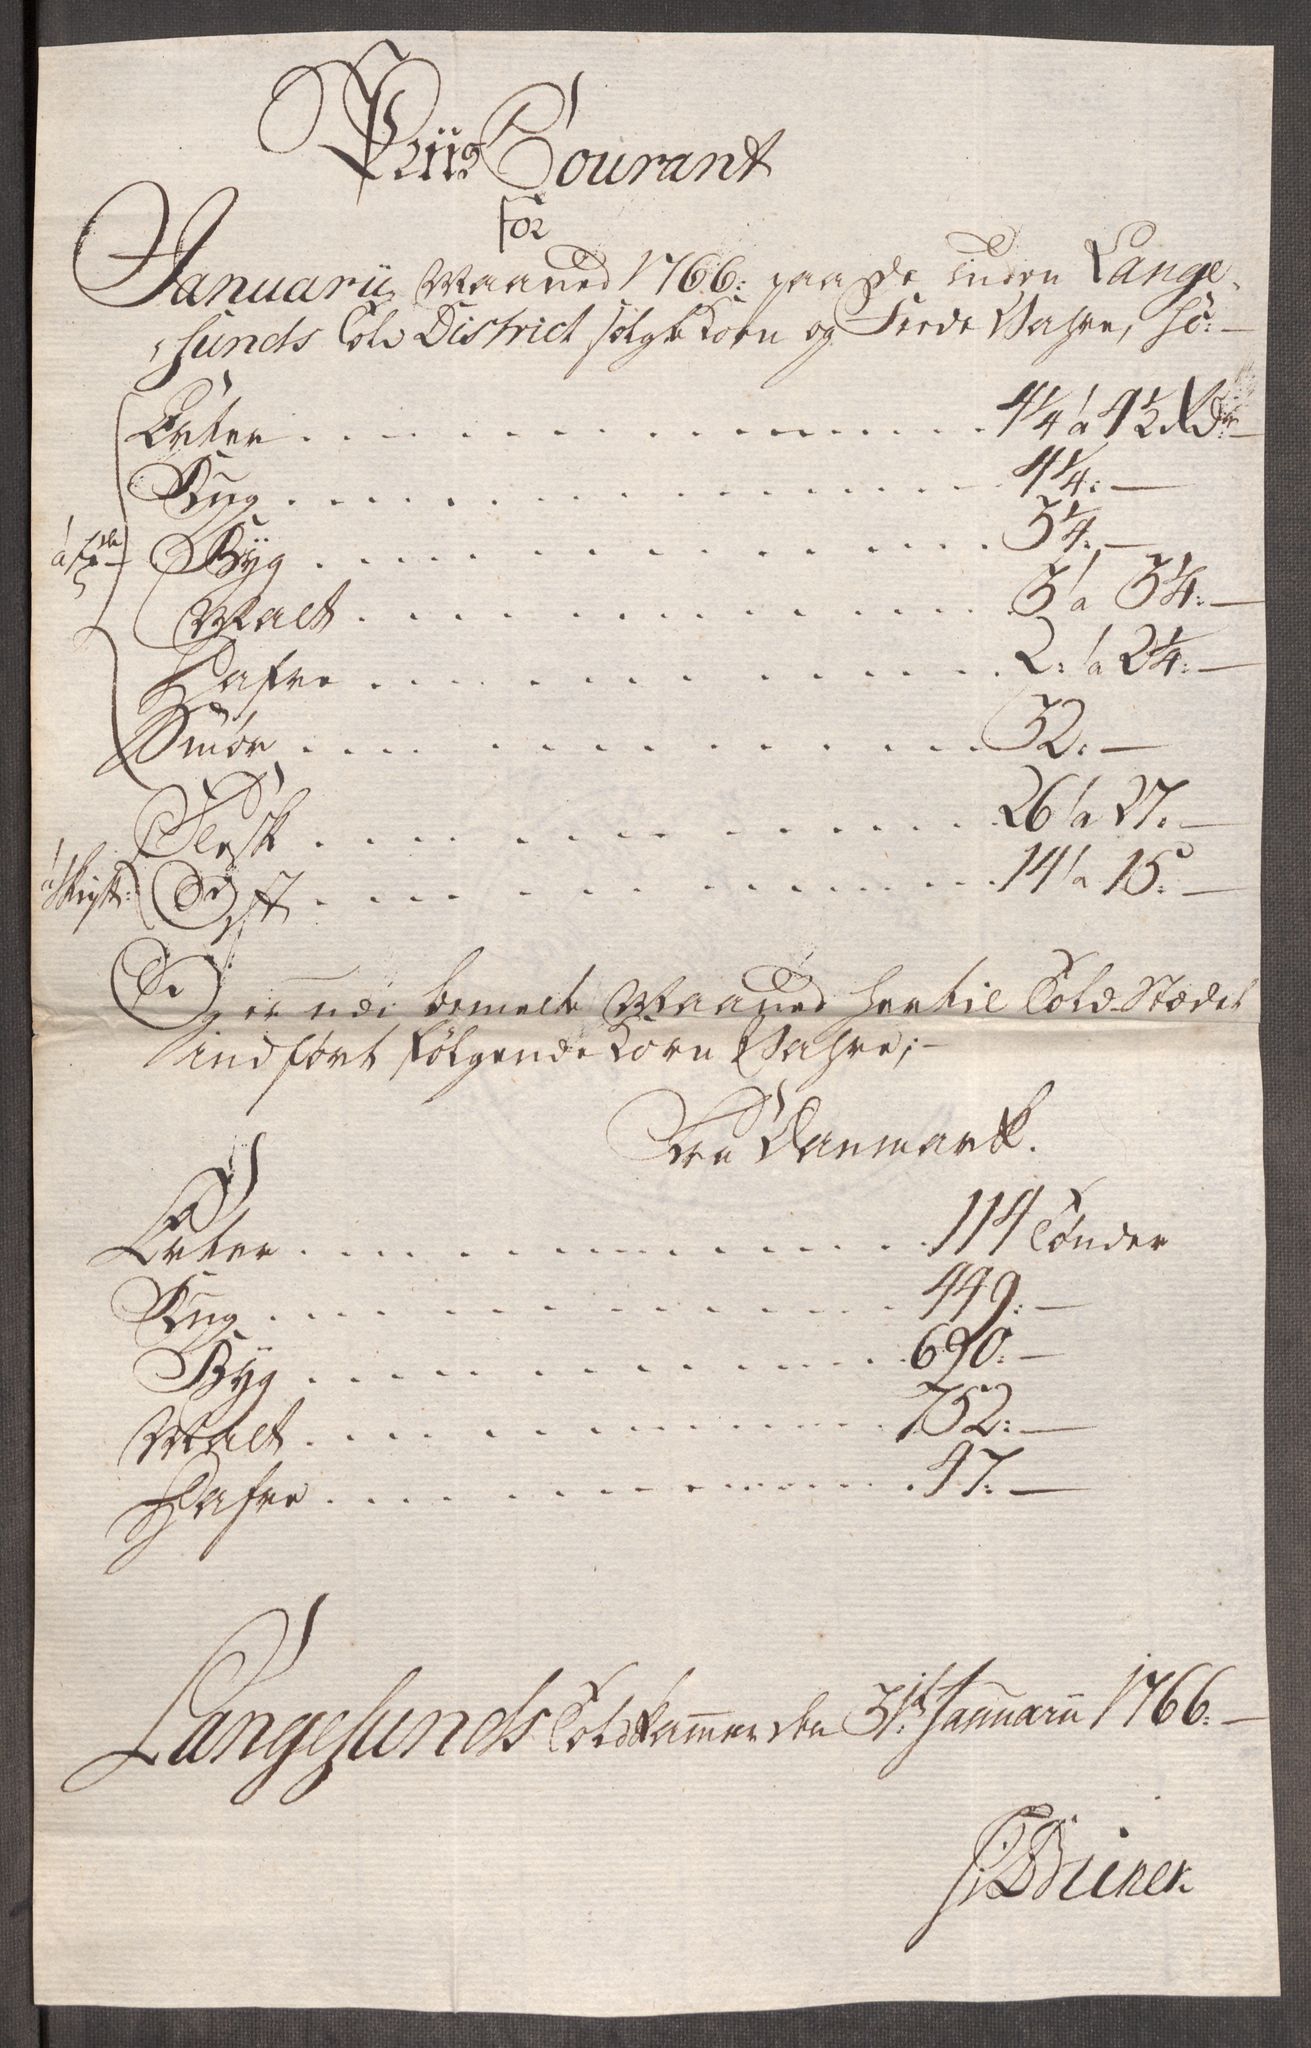 Priis Courant
for
Januarii Maaned 1766: paa de inden Lange-
sunds Told District solgte Korn og Fede Vahre, Sø: -
Erter . . . 4 1/4 à 4 1/2 Rdr
Rug . . . 4 1/4: -
à Tde Byg . . . 3 1/4: -
Malt . . . 3 à 3 1/4: -
Hafre . . . 2: à 2 1/4: -
Smør . . . 32: -
Flesk . . . 26 à 27: -
Ost . . . 14 à 15: -
Og er udi bemelte Maaned hertil Told-Stædet
indført følgende Korn Vahre; -
Fra Danmark.
Erter . . . 114 Tønder
Rug . . . 449: -
Byg . . . 690: -
Malt . . . 752: -
Hafre . . . 47: -
Langesunds Toldkammer den 31te Januarii 1766: -